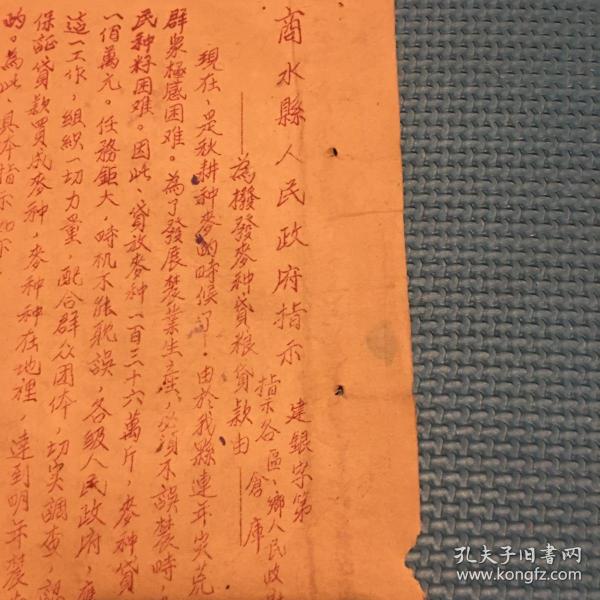 商水縣人民政府指示
建銀字第
——為撥發麥种貸粮貸款由——
指示各區、鄉人民政府
倉庫
現在，是秋耕种麥的時候了。由於我縣連年灾荒
群衆極感困难。為了發展農業生產，必須不誤農時，
民种籽困难。因此、貸放麥种一百三十六萬斤，麥种貸
一佰萬元。任務鉅大，時机不能躭誤，各級人民政府，應
這一工作，組織一切力量，配合群众团体，切实調查，認
保証貸款買成麥种，麥种种在地裡，達到明年農
的。為此，具体指示如下
孔夫子旧书网
www.kongfz.com